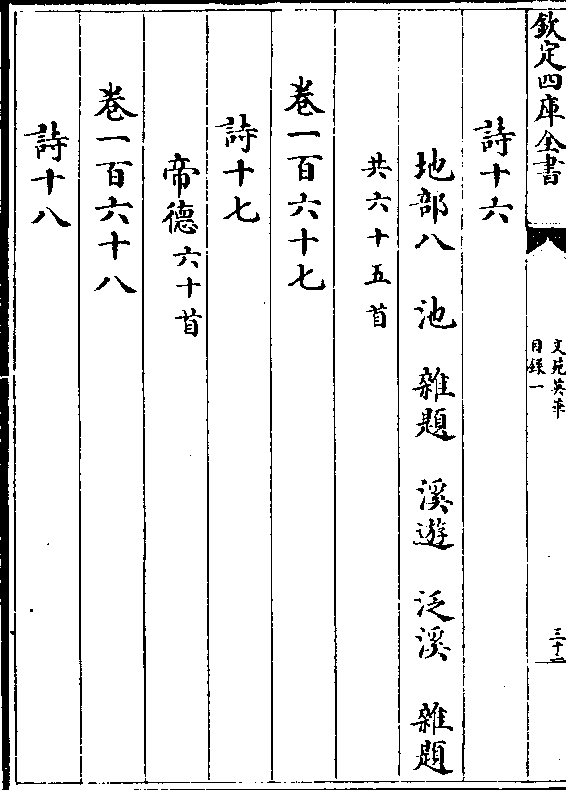 欽定四庫全書
文苑英華
目録一
三十二
詩十六
地部八 池 雜題 溪遊 泛溪 雜題
共六十五首
卷一百六十七
詩十七
帝德六十首
卷一百六十八
詩十八